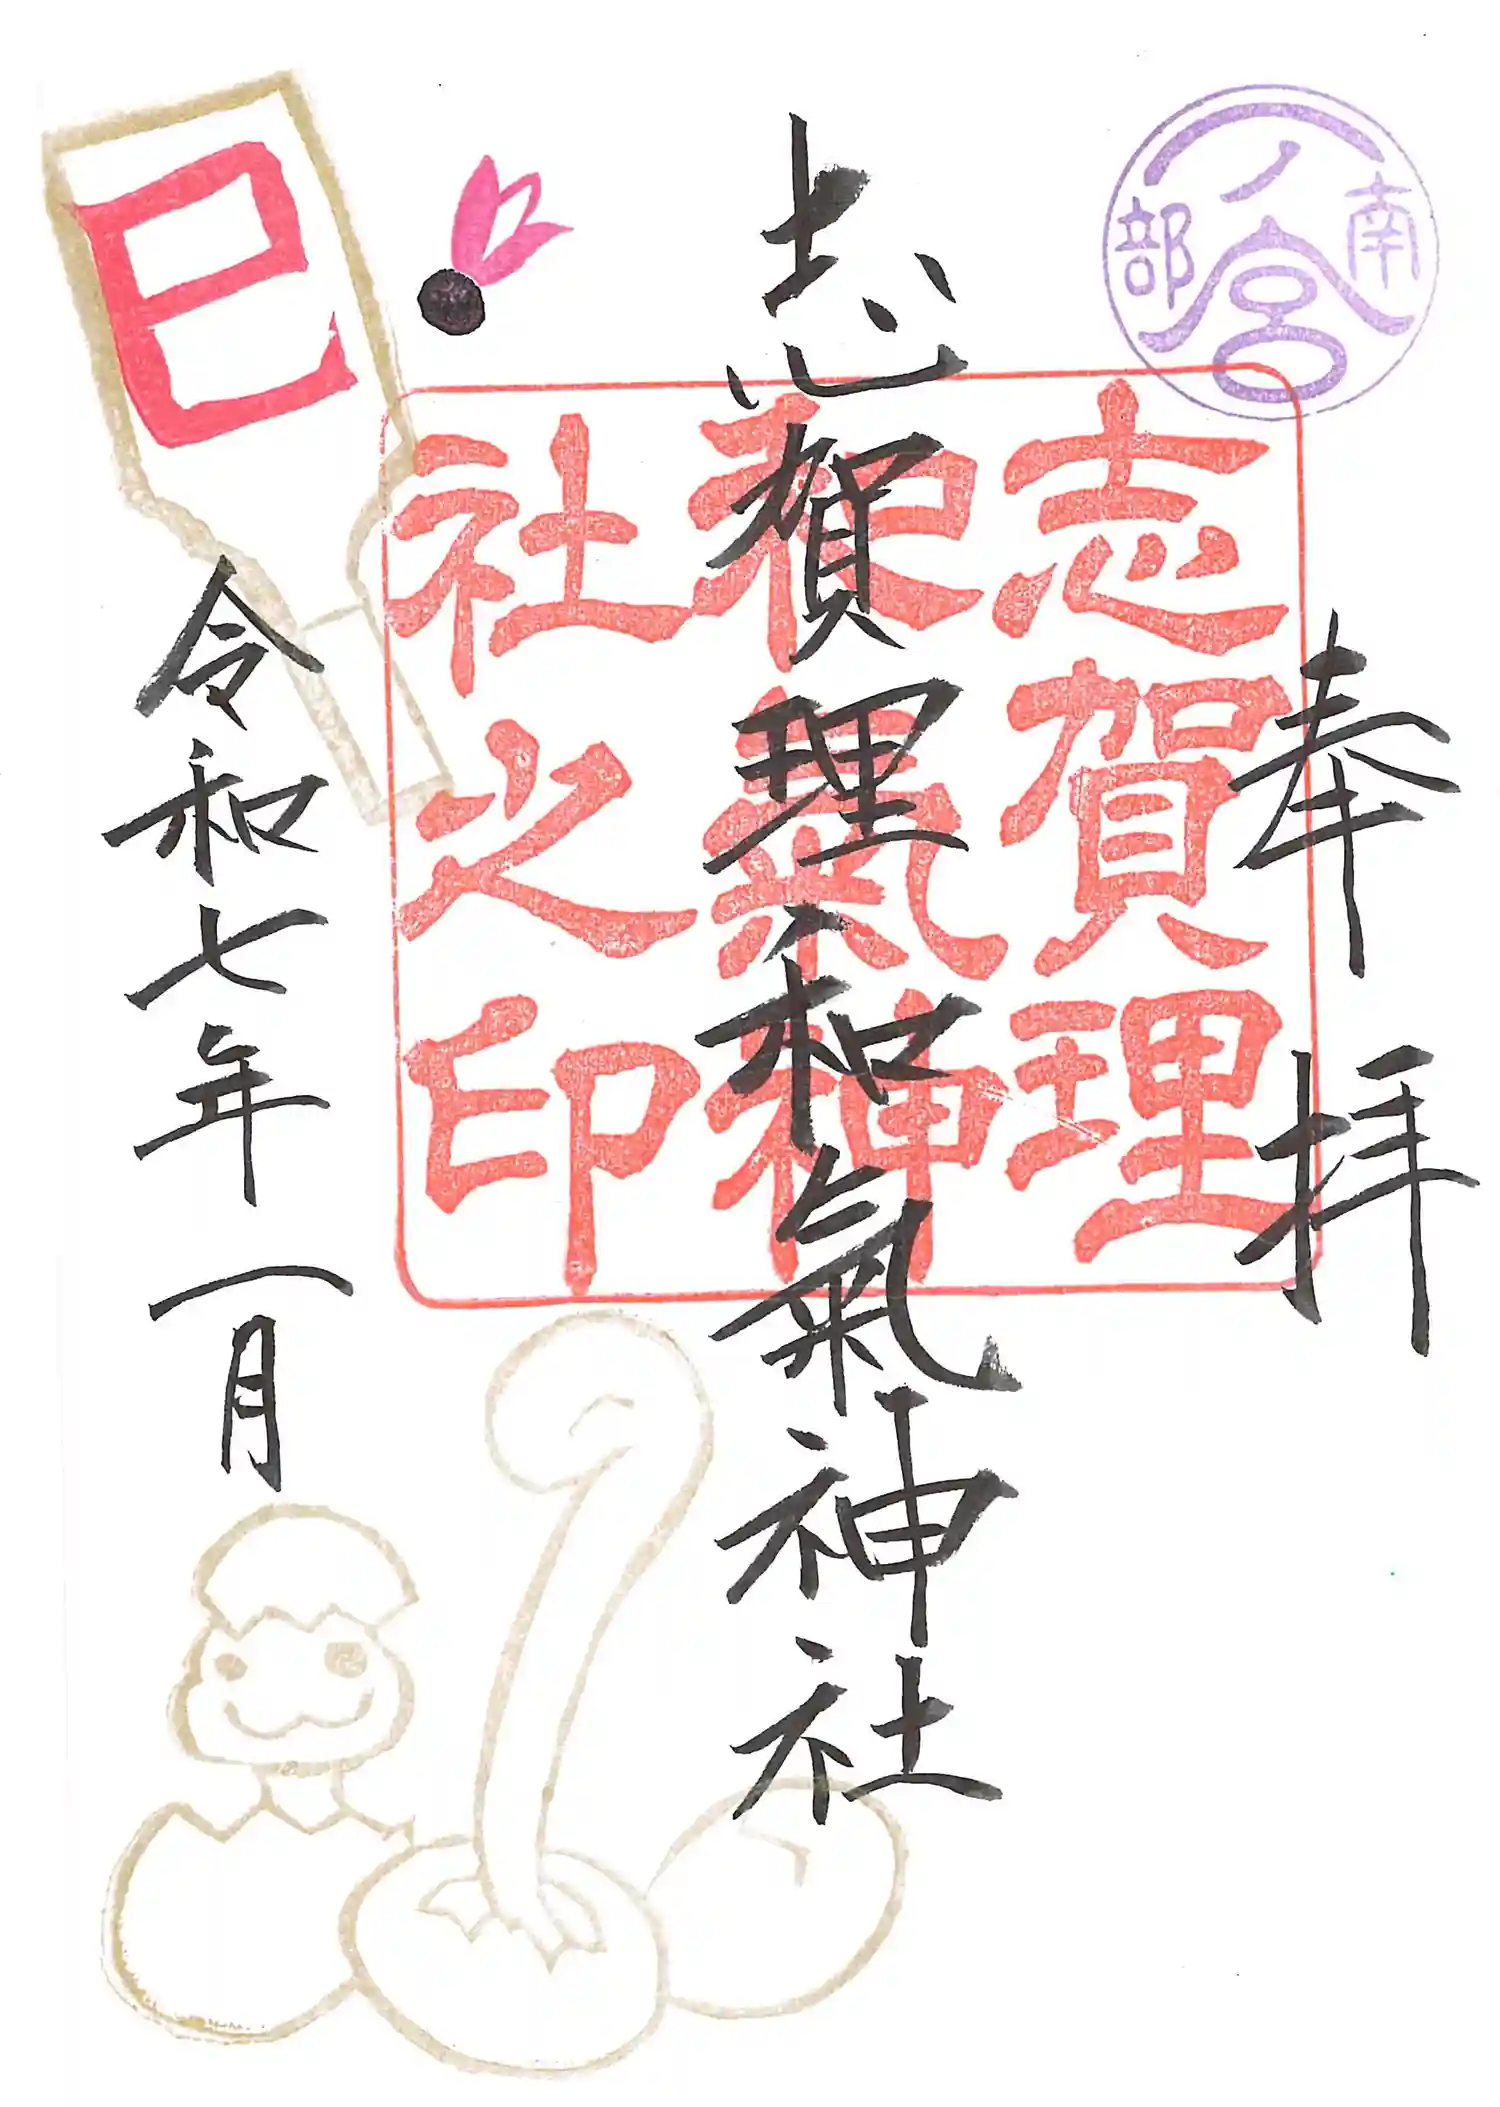 奉拝
南部
一ノ宮
志賀理和氣神社
志賀理
和氣神
社之印
巳
令和七年一月